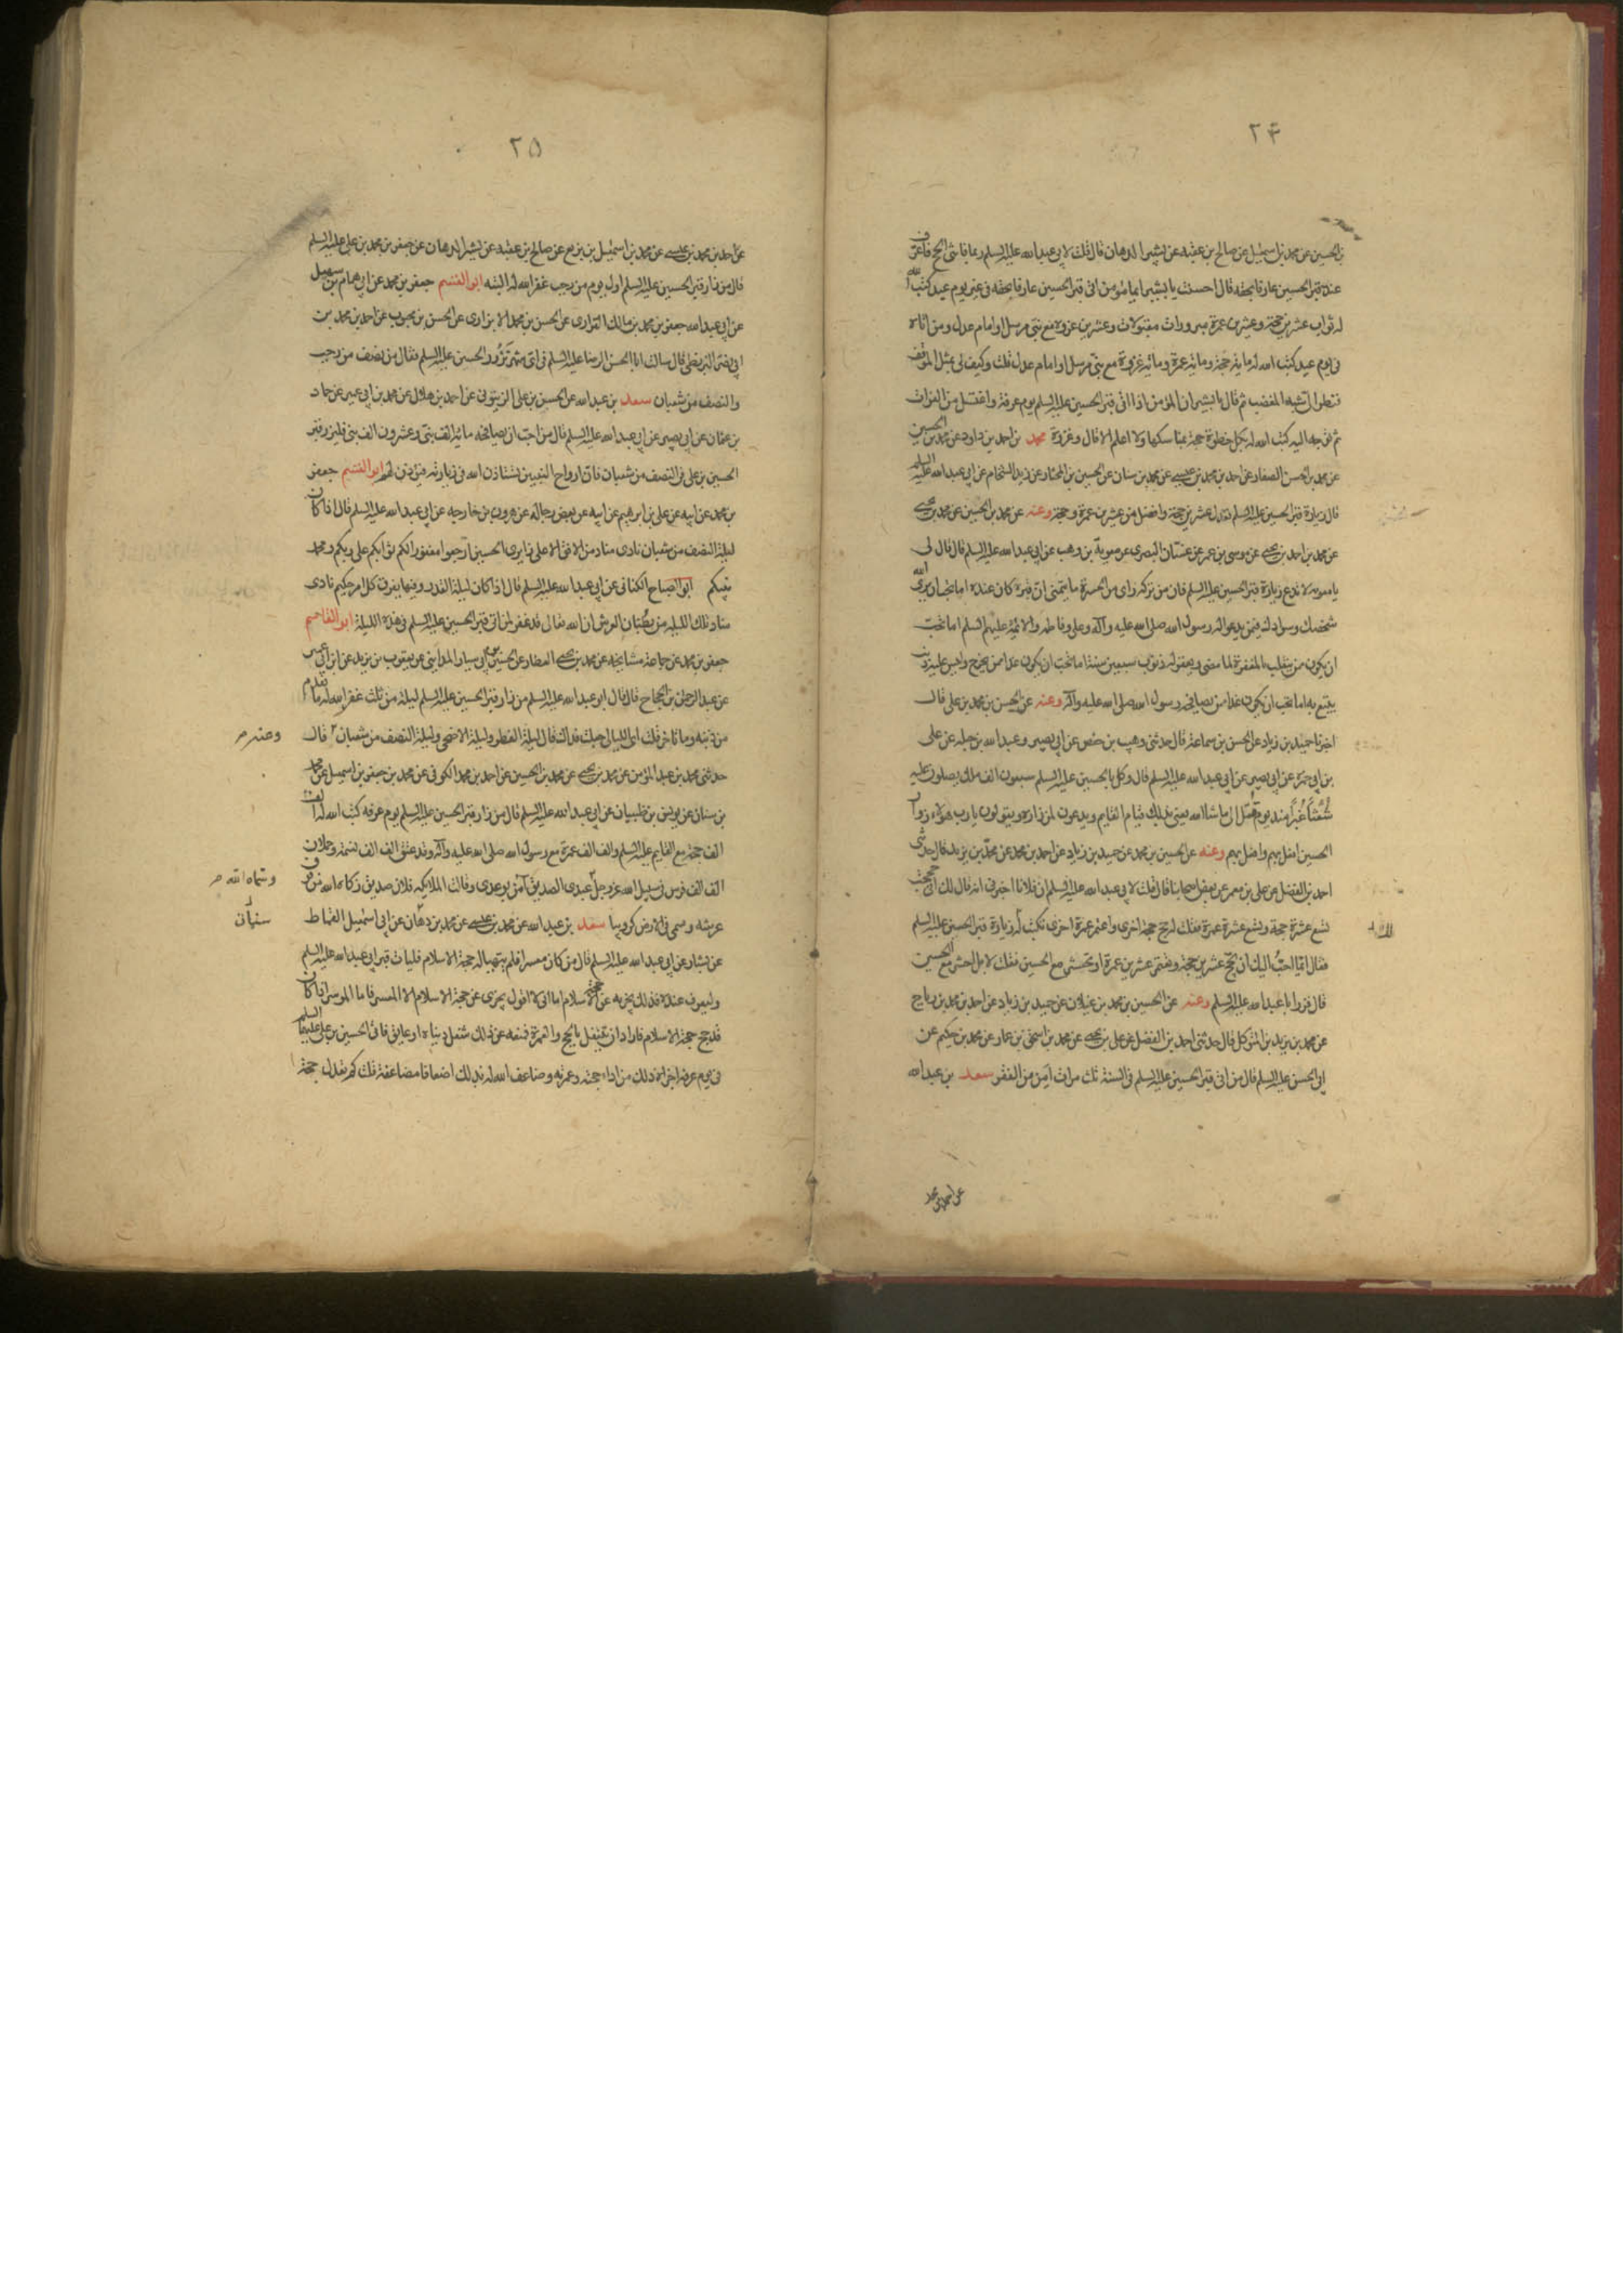 ٢۴
بن الحسين عن محمد بن اسمعيل عن صالح بن عقبه عن بشير الدهان قال قلت لابي عبد الله عليه السلم ربما فاتني الحج فاعرّف
عند قبر الحسين عارفا بحقه قال احسنت يا بشير ايما مؤمن اتى قبر الحسين عارفا بحقه في غير يوم عيد كتب الله
له ثواب عشرين حجة وعشرين عمرة مبرورات مقبولات وعشرين غزوة مع نبي مرسل او امام عدل ومن اتاه
في يوم عيد كتب الله له ماية حجة وماية عمرة وماية غزوة مع نبي مرسل او امام عدل قلت وكيف لي بمثل الموقف
فنظر الى شبه المغضب ثم قال يا بشير ان المؤمن اذا اتى قبر الحسين عليه السلم يوم عرفة واغتسل من الفرات
ثم توجه اليه كتب الله له بكل خطوة حجة بمناسكها ولا اعلم الا قال وغزوة محمد بن احمد بن داود عن محمد بن الحسين
عن محمد بن الحسن الصفار عن احمد بن محمد بن عيسى عن محمد بن سنان عن الحسين بن المختار عن زيد الشحام عن ابي عبد الله عليه السلم
قال زيارة قبر الحسين عليه السلم تعدل عشرين حجة وافضل من عشرين عمرة وحجة وعنه عن محمد بن الحسين عن محمد بن يحيى
عن محمد بن احمد بن يحيى عن موسى بن عمر عن غسّان البصري عن معوية بن وهب عن ابي عبد الله عليه السلم قال قال لي
يا معوية لا تدع زيارة قبر الحسين عليه السلم فان من تركه راى من الحسرة ما يتمنى ان قبره كان عنده اما تحب ان يرى الله
شخصك وسوادك فيمن يدعو له رسول الله صلى الله عليه وآله وعلي وفاطمه والائمة عليهم السلم اما تحب
ان يكون ممن ينقلب بالمغفرة لما مضى ويغفر له ذنوب سبعين سنة اما تحب ان يكون غدا ممن يخرج وليس عليه ذنب
يتبع به اما تحب ان يكون غدا من يصافحه رسول الله صلى الله عليه وآله وعنه عن الحسن بن محمد بن علي قال
اخبرنا حميد بن زياد عن الحسن بن سماعة قال حدثني وهيب بن حفص عن ابي بصير وعبد الله بن جبله عن علي
بن ابي حمزة عن ابي بصير عن ابي عبد الله عليه السلم قال وكل بالحسين عليه السلم سبعون الف ملك يصلون عليه
شُعثاً غُبراً منذ يوم قتل الى ما شاء الله يعني بذلك قيام القايم ويدعون لمن زاره ويقولون يا رب هؤلاء زوار
الحسين افعل بهم وافعل بهم وعنه عن الحسين بن محمد عن حميد بن زياد عن احمد بن محمد عن محمد بن يزيد قال حدثني
احمد بن الفضل عن علي بن معمر عن بعض اصحابنا قال قلت لابي عبد الله عليه السلم ان فلانا اخبرني انه قال لك اني حججت
تسع عشرة حجة وتسع عشرة عمرة فقلت له حج حجة اخرى واعتمر عمرة اخرى تكتب لك زيارة قبر الحسين عليه السلم
فقال ايما احبّ اليك ان تحج عشرين حجة وتعتمر عشرين عمرة او تحشر مع الحسين فقلت لا بل احشر مع الحسين
قال فزر ابا عبد الله عليه السلم وعنه عن الحسين بن محمد بن غيلان عن حميد بن زياد عن احمد بن محمد بن رباح
عن محمد بن يزيد بن المتوكل قال حدثني احمد بن الفضل عن علي بن يحيى عن محمد بن اسحق بن عمار عن محمد بن حكيم عن
ابي الحسن عليه السلم قال من اتى قبر الحسين عليه السلم في السنة ثلث مرات امن من الفقر سعد بن عبد الله
عن احمد بن محمد
٢۵
عن احمد بن محمد بن عيسى عن محمد بن اسمعيل بن بزيع عن صالح بن عقبه عن بشير الدهان عن جعفر بن محمد بن علي عليه السلم
قال من زار قبر الحسين عليه السلم اول يوم من رجب غفر الله له البته ابو القسم جعفر بن محمد عن ابي همام بن سهيل
عن ابي عبد الله جعفر بن محمد بن مالك الفزاري عن الحسن بن محمد الابزاري عن الحسن بن محبوب عن احمد بن محمد بن
ابي نصر البزنطي قال سالت ابا الحسن الرضا عليه السلم في اي شهر نَزُور الحسين عليه السلم فقال من نصف من رجب
والنصف من شعبان سعد بن عبد الله عن الحسين بن علي الزيتوني عن احمد بن هلال عن محمد بن ابي عمير عن حماد
بن عثمان عن ابي بصير عن ابي عبد الله عليه السلم قال من احب ان يصافحه مائة الف نبي وعشرون الف نبي فليزر قبر
الحسين بن علي في النصف من شعبان فان ارواح النبيين تستاذن الله في زيارته فيؤذن لهم ابو القسم جعفر
بن محمد عن ابيه عن علي بن ابرهيم عن ابيه عن بعض رجاله عن هرون بن خارجه عن ابي عبد الله عليه السلم قال اذا كان
ليلة النصف من شعبان نادى مناد من الافق الاعلى زايري الحسين ارجعوا مغفورا لكم ثوابكم على ربكم ومحمد
نبيكم ابو الصباح الكناني عن ابي عبد الله عليه السلم قال اذا كان ليلة القدر وفيها يفرق كل امر حكيم نادى
مناد تلك الليلة من بُطْنان العرش ان الله تعالى قد غفر لمن اتى قبر الحسين عليه السلم في هذه الليلة ابو القاسم
جعفر بن محمد عن جماعة مشايخه عن محمد بن يحيى العطار عن الحسين بن ابي سيار المدايني عن يعقوب بن يزيد عن ابن ابي عمير
عن عبد الرحمن بن الحجاج قال قال ابو عبد الله عليه السلم من زار قبر الحسين عليه السلم ليلة من ثلث غفر الله له ما تقدم
من ذنبه وما تاخر قلت اي الليالي جعلت فداك قال ليلة الفطر وليلة الاضحى وليلة النصف من شعبان قال
وعنه م
حدثني محمد بن عبد المؤمن عن محمد بن يحيى عن محمد بن الحسين عن احمد بن محمد الكوفي عن محمد بن جعفر بن اسمعيل عن محمد
بن سنان عن يونس بن ظبيان عن ابي عبد الله عليه السلم قال من زار قبر الحسين عليه السلم يوم عرفه كتب الله له الف
الف حجة مع القايم عليه السلم والف الف عمرة مع رسول الله صلى الله عليه وآله وعتق الف الف نسمة وحملان
الف الف فرس في سبيل الله عز وجل عبدي الصديق آمن بوعدي وقالت الملايكه فلان صديق زكاه الله من فوق
وسماه الله م
عرشه وسمي في الارض كروبيا سعد بن عبد الله عن محمد بن عيسى عن محمد بن دهان عن ابي اسمعيل القماط
سنان
عن بشار عن ابي عبد الله عليه السلم قال من كان معسرا فلم يتهيا له حجة الاسلام فليات قبر ابي عبد الله عليه السلم
وليعرف عنده فذلك يجزيه عن حجة الاسلام اما اني لا اقول يجزي عن حجة الاسلام الا المعسر فاما الموسر اذا كان
قد حج حجة الاسلام فاراد ان يتنفل بالحج والعمرة فمنعه عن ذلك شغل دنياه او عايق فاتى الحسين بن علي عليهما السلم
في يوم عرفة اجزاه ذلك من اداء حجته وعمرته وضاعف الله له بذلك اضعافا مضاعفة قلت كم تعدل حجة